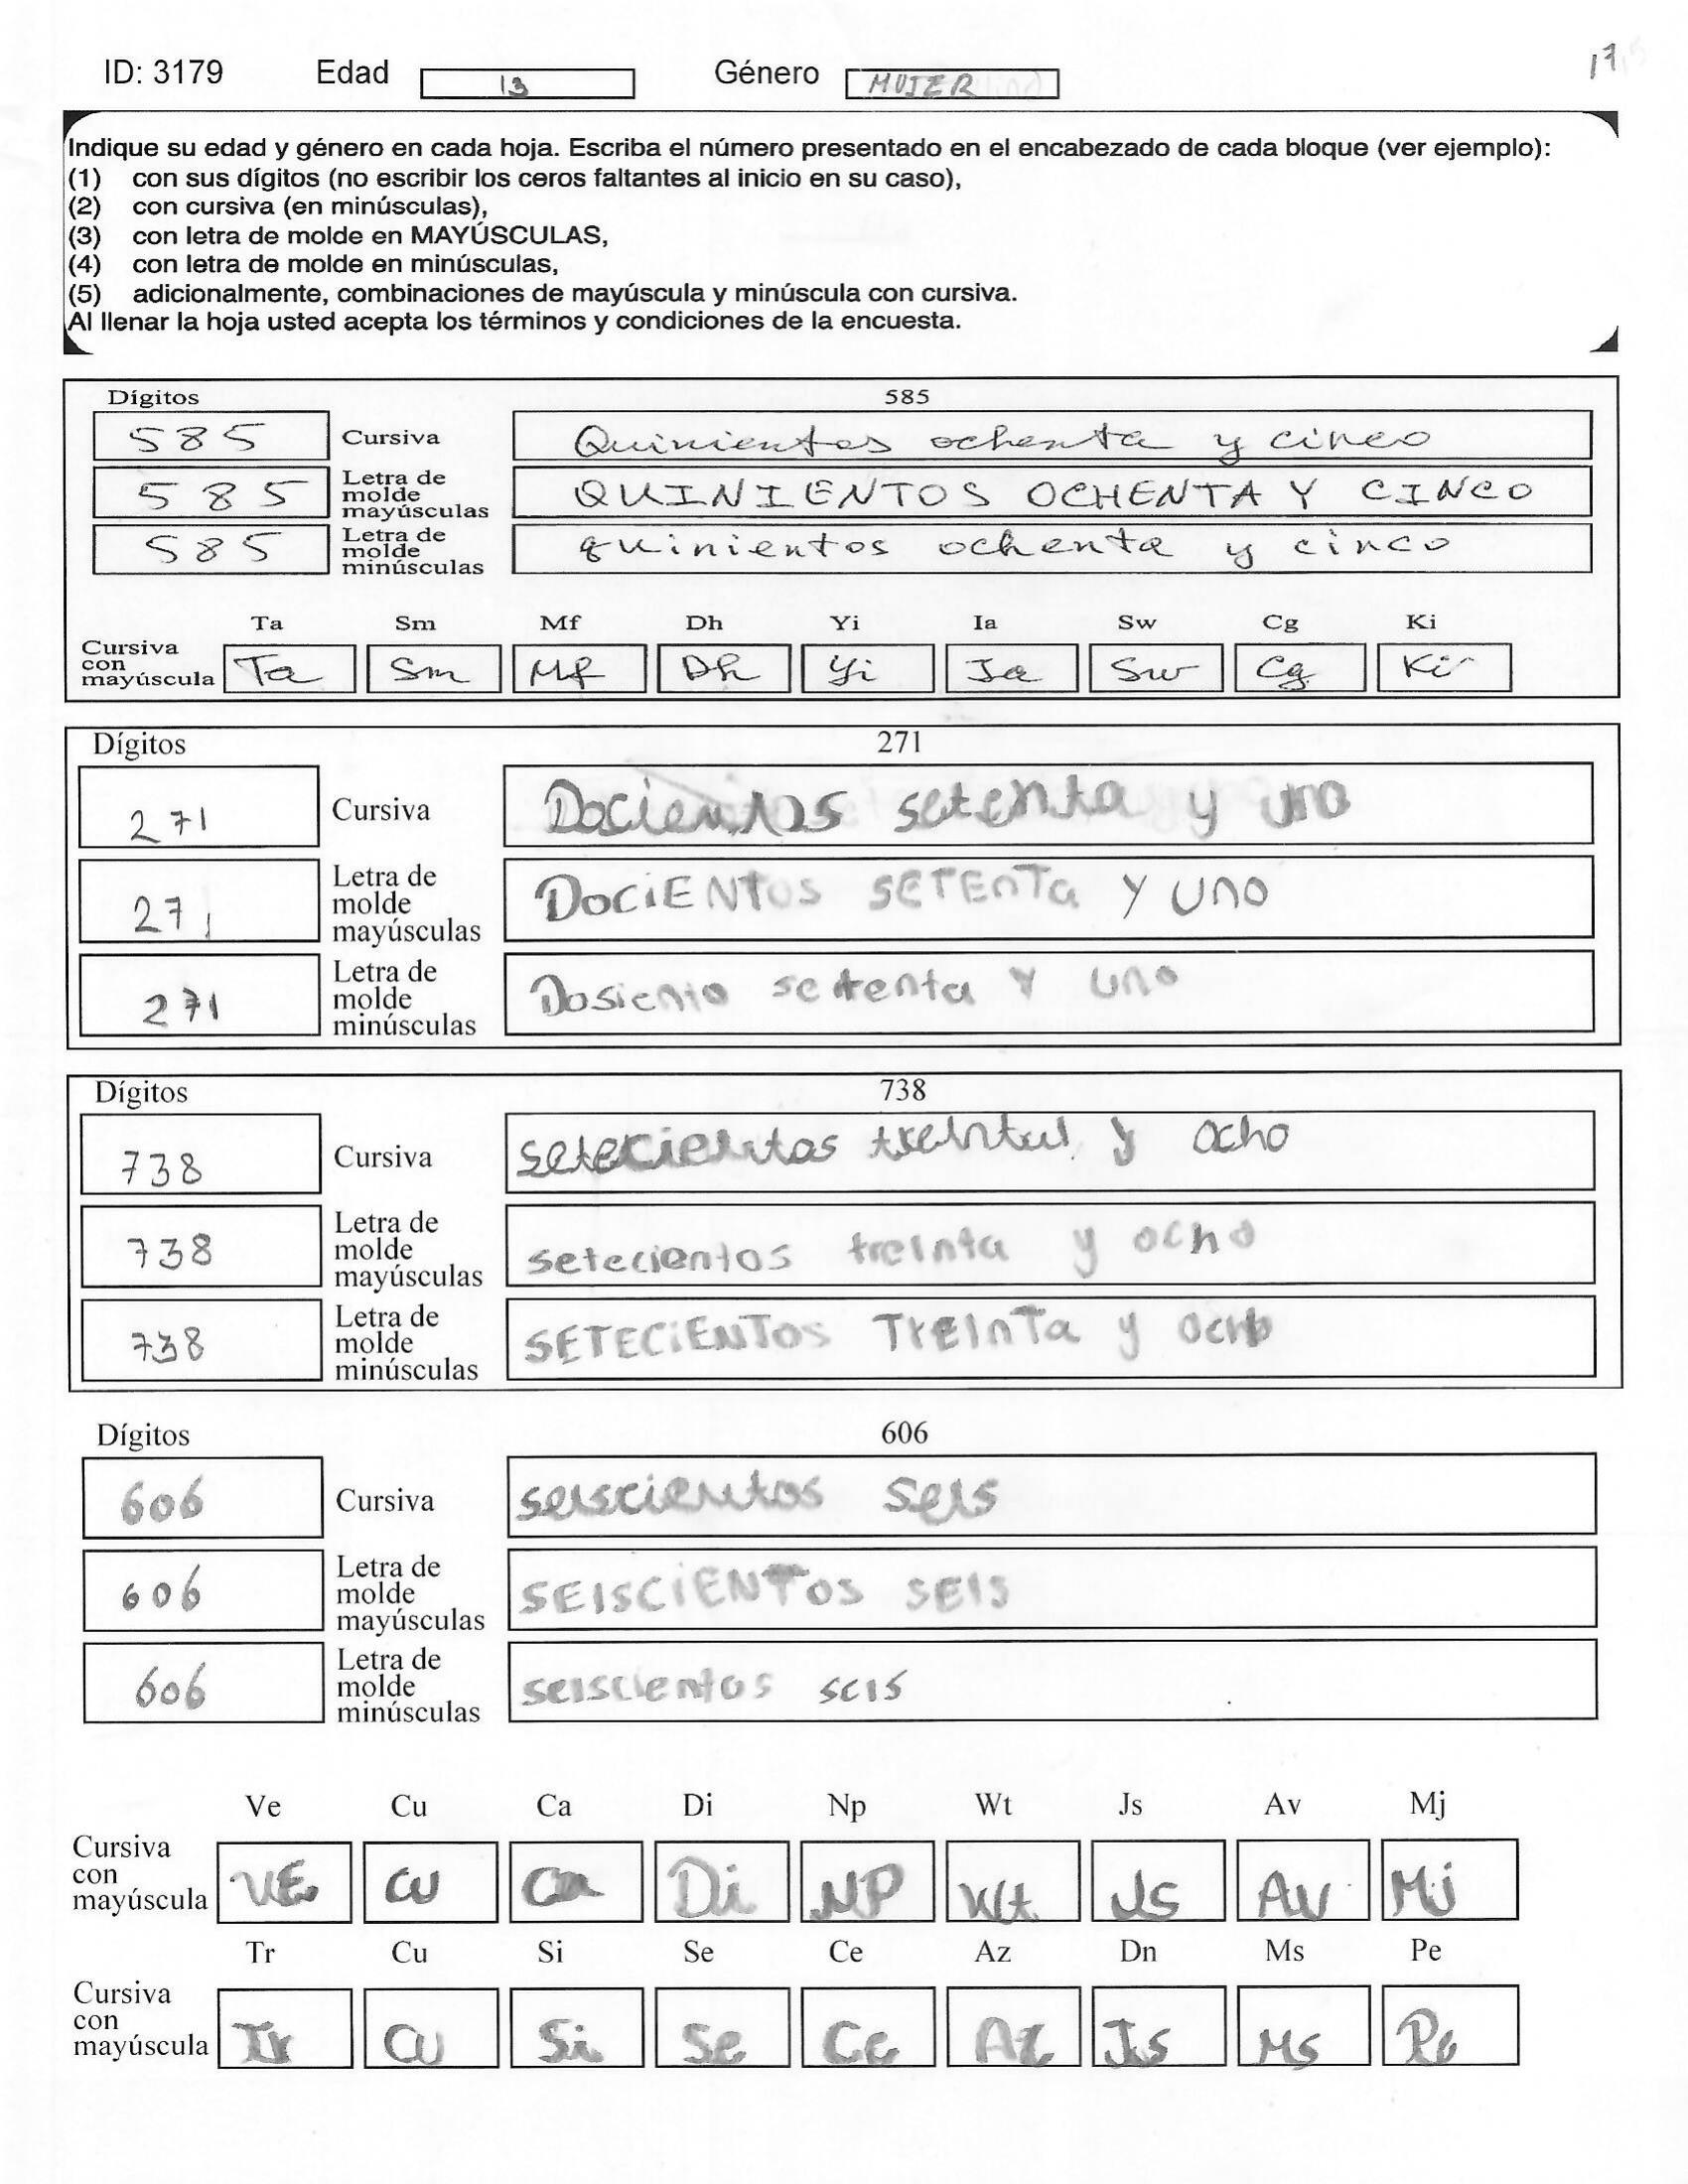 ID: 3179 Edad 13 Género MUJER 17
Indique su edad y género en cada hoja. Escriba el número presentado en el encabezado de cada bloque (ver ejemplo):
(1) con sus dígitos (no escribir los ceros faltantes al inicio en su caso),
(2) con cursiva (en minúsculas),
(3) con letra de molde en MAYÚSCULAS,
(4) con letra de molde en minúsculas,
(5) adicionalmente, combinaciones de mayúscula y minúscula con cursiva.
Al llenar la hoja usted acepta los términos y condiciones de la encuesta.
Dígitos 585
585 Cursiva Quinientos ochenta y cinco
585 Letra de molde mayúsculas QUINIENTOS OCHENTA Y CINCO
585 Letra de molde minúsculas quinientos ochenta y cinco
Ta Sm Mf Dh Yi Ia Sw Cg Ki
Cursiva con mayúscula Ta Sm Mf Dh Yi Ia Sw Cg Ki
Dígitos 271
271 Cursiva Docientos setenta y uno
271 Letra de molde mayúsculas DOCiENTOS SETEnTa Y UnO
271 Letra de molde minúsculas Dosiento setenta Y uno
Dígitos 738
738 Cursiva setecientos treinta y ocho
738 Letra de molde mayúsculas setecientos treinta y ocho
738 Letra de molde minúsculas SETECiENTos TreInTa y ocho
Dígitos 606
606 Cursiva seiscientos seis
606 Letra de molde mayúsculas SEISCiENTOS SEIS
606 Letra de molde minúsculas seiscientos seis
Ve Cu Ca Di Np Wt Js Av Mj
Cursiva con mayúscula VE Cu Ca Di NP Wt Js Av Mj
Tr Cu Si Se Ce Az Dn Ms Pe
Cursiva con mayúscula Tr Cu Si Se Ce Az Js Ms Pe